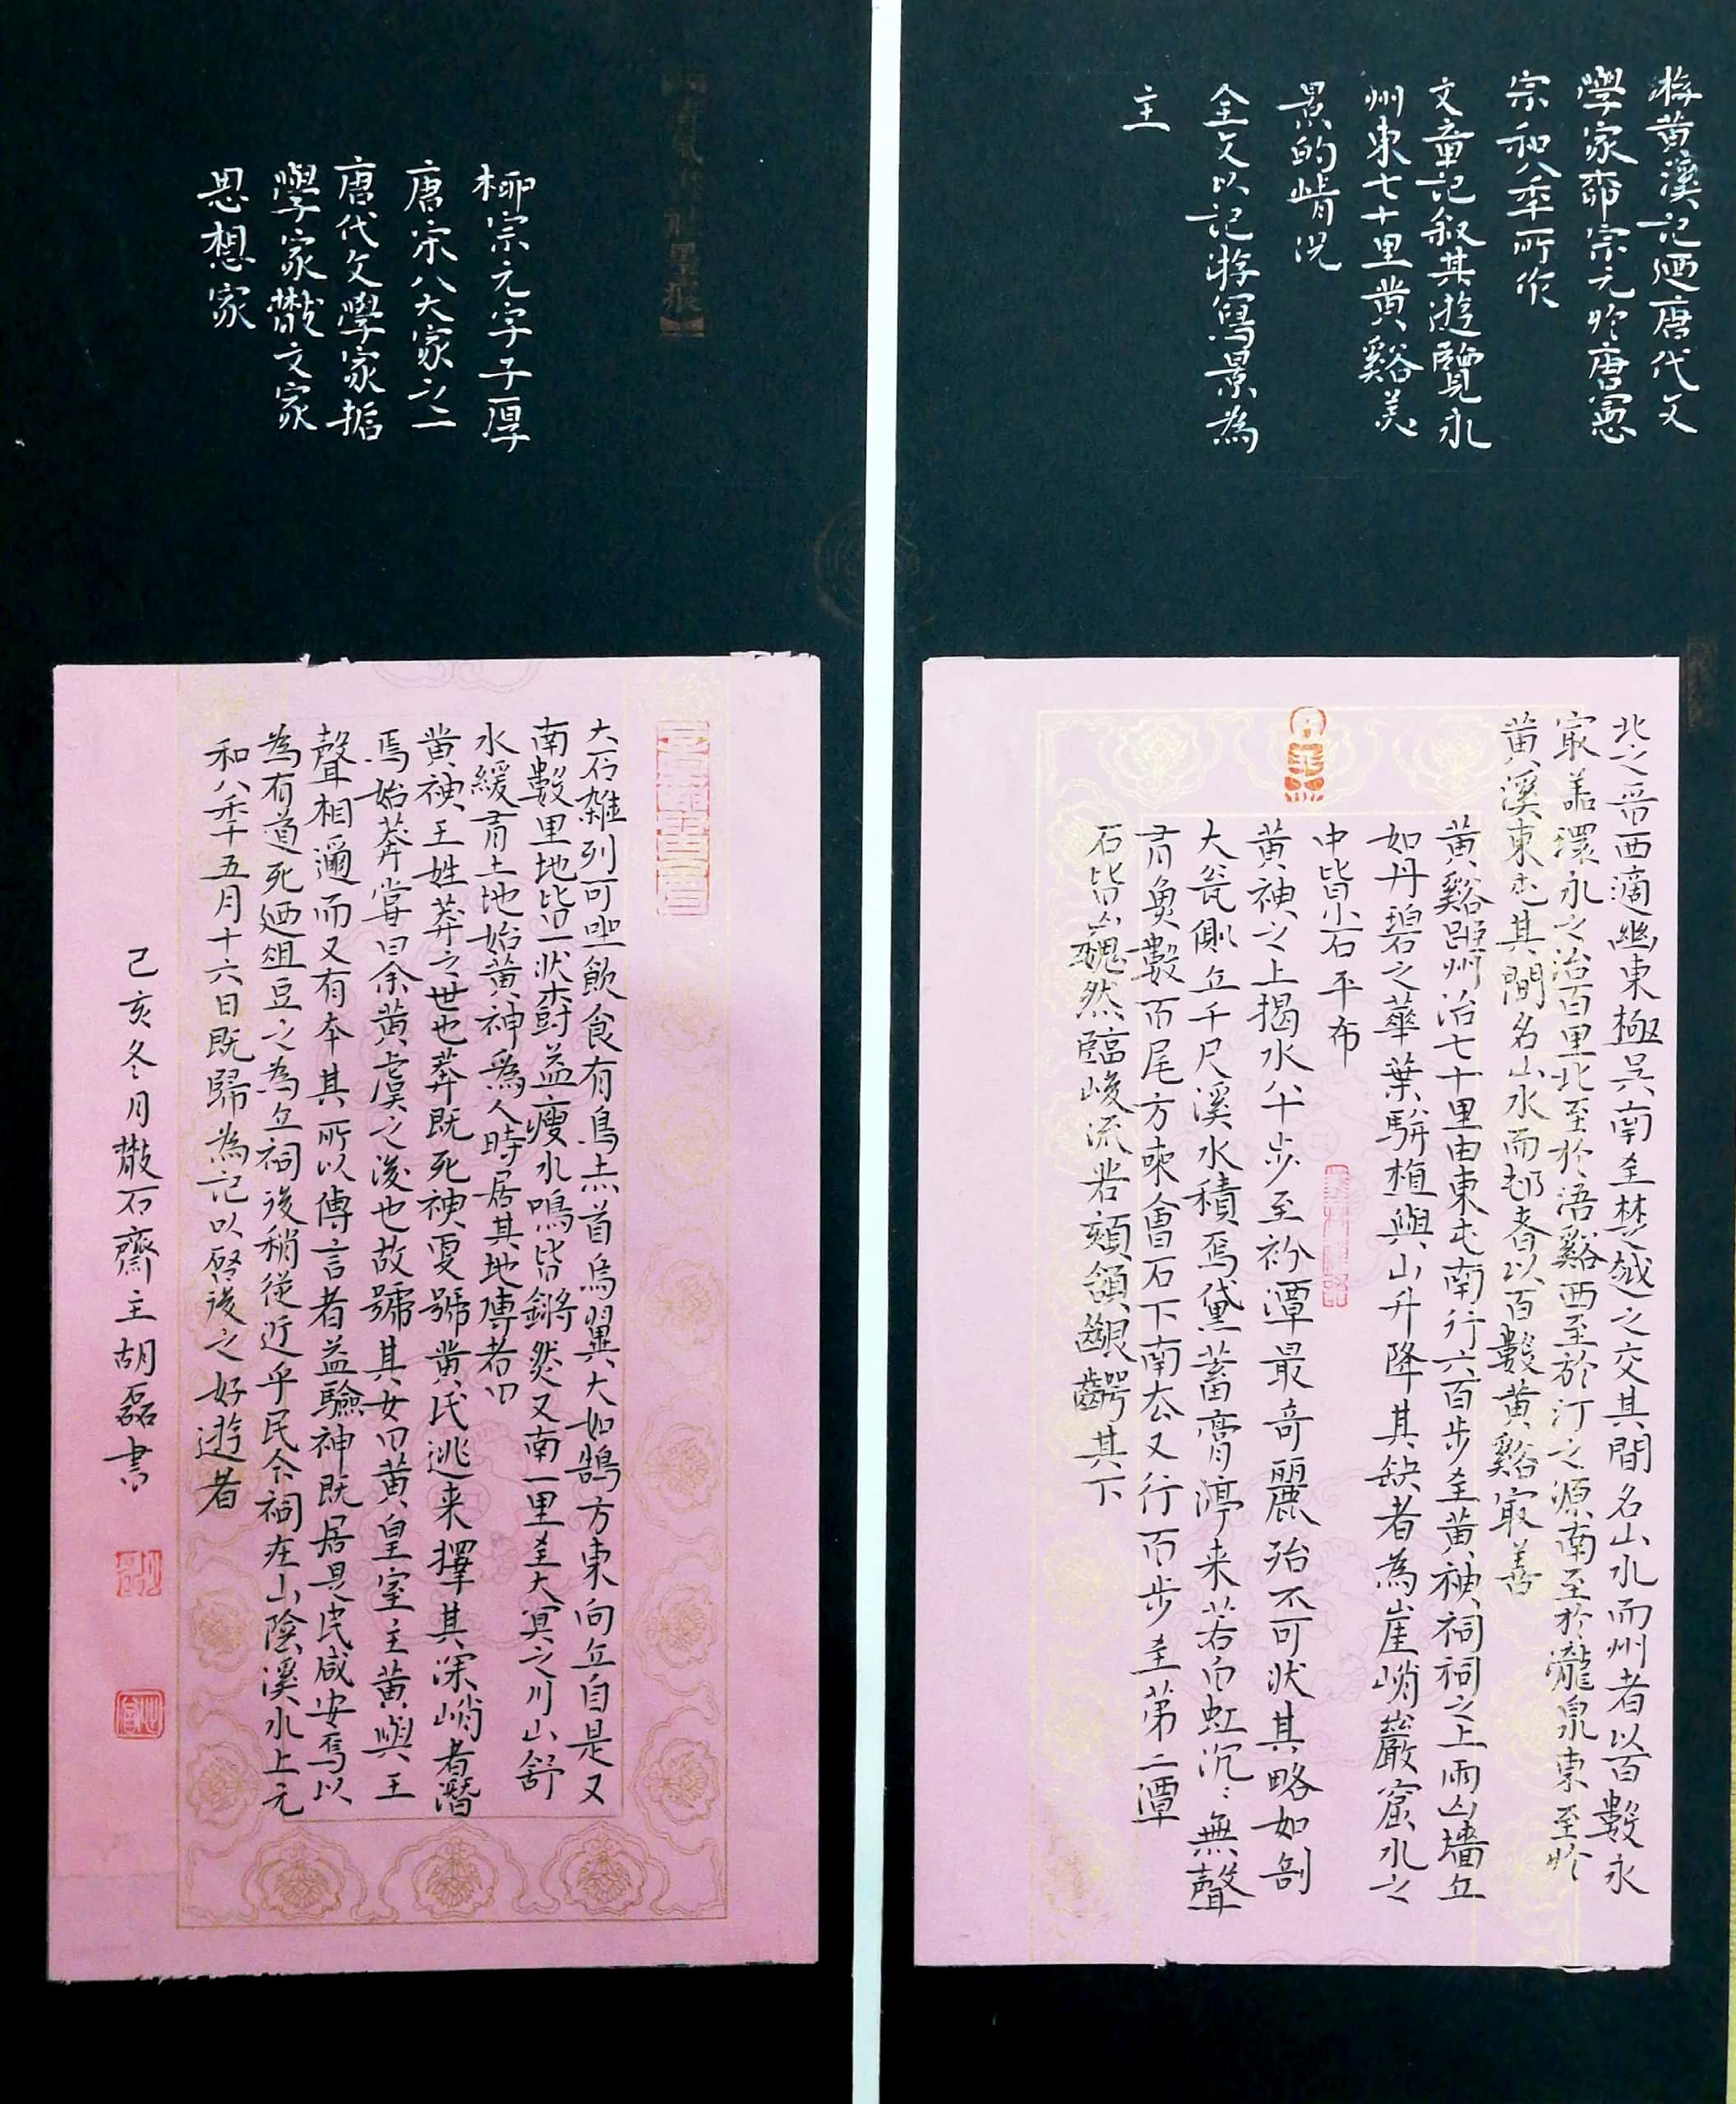 游黄溪記廼唐代文
學家柳宗元於唐憲
宗和八年所作
文章記叙其遊覽永
州東七十里黄谿美
景的情況
全文以記游寫景為
主
北之晉西適豳東極吴南至楚越之交其間名山水而州者以百數永
最善環永之治百里北至於浯谿西至於湘之源南至於瀧泉東至於
黄溪東屯其間名山水而邨者以百數黄谿最善
黄谿距州治七十里由東屯南行六百步至黄神祠祠之上兩山墙立
如丹碧之華葉駢植與山升降其缺者為崖峭巖窟水之
中皆小石平布
黄神之上揭水八十步至初潭最奇麗殆不可狀其略如剖
大瓮側立千尺溪水積焉黛蓄膏渟来若白虹沉沉無聲
有魚數百尾方来會石下南去又行百步至第二潭
石皆巍然臨峻流若頦頷齦齶其下
柳宗元字子厚
唐宋八大家之一
唐代文學家哲
學家散文家
思想家
大石雜列可坐飲食有鳥赤首烏翼大如鵠方東向立自是又
南數里地皆一狀樹益瘦水鳴皆鏘然又南一里至大冥之川山舒
水緩有土地始黄神為人時居其地傳者曰
黄神王姓莽之世也莽既死神更號黄氏逃来擇其深峭者潛
焉始莽嘗曰余黄虞之後也故號其女曰黄皇室主黄與王
聲相邇而又有本其所以傳言者益驗神既居是民咸安焉以
為有道死廼俎豆之為立祠後稍徙近乎民今祠在山陰溪水上元
和八年五月十六日既歸為記以啓後之好遊者
己亥冬月散石齋主胡磊書